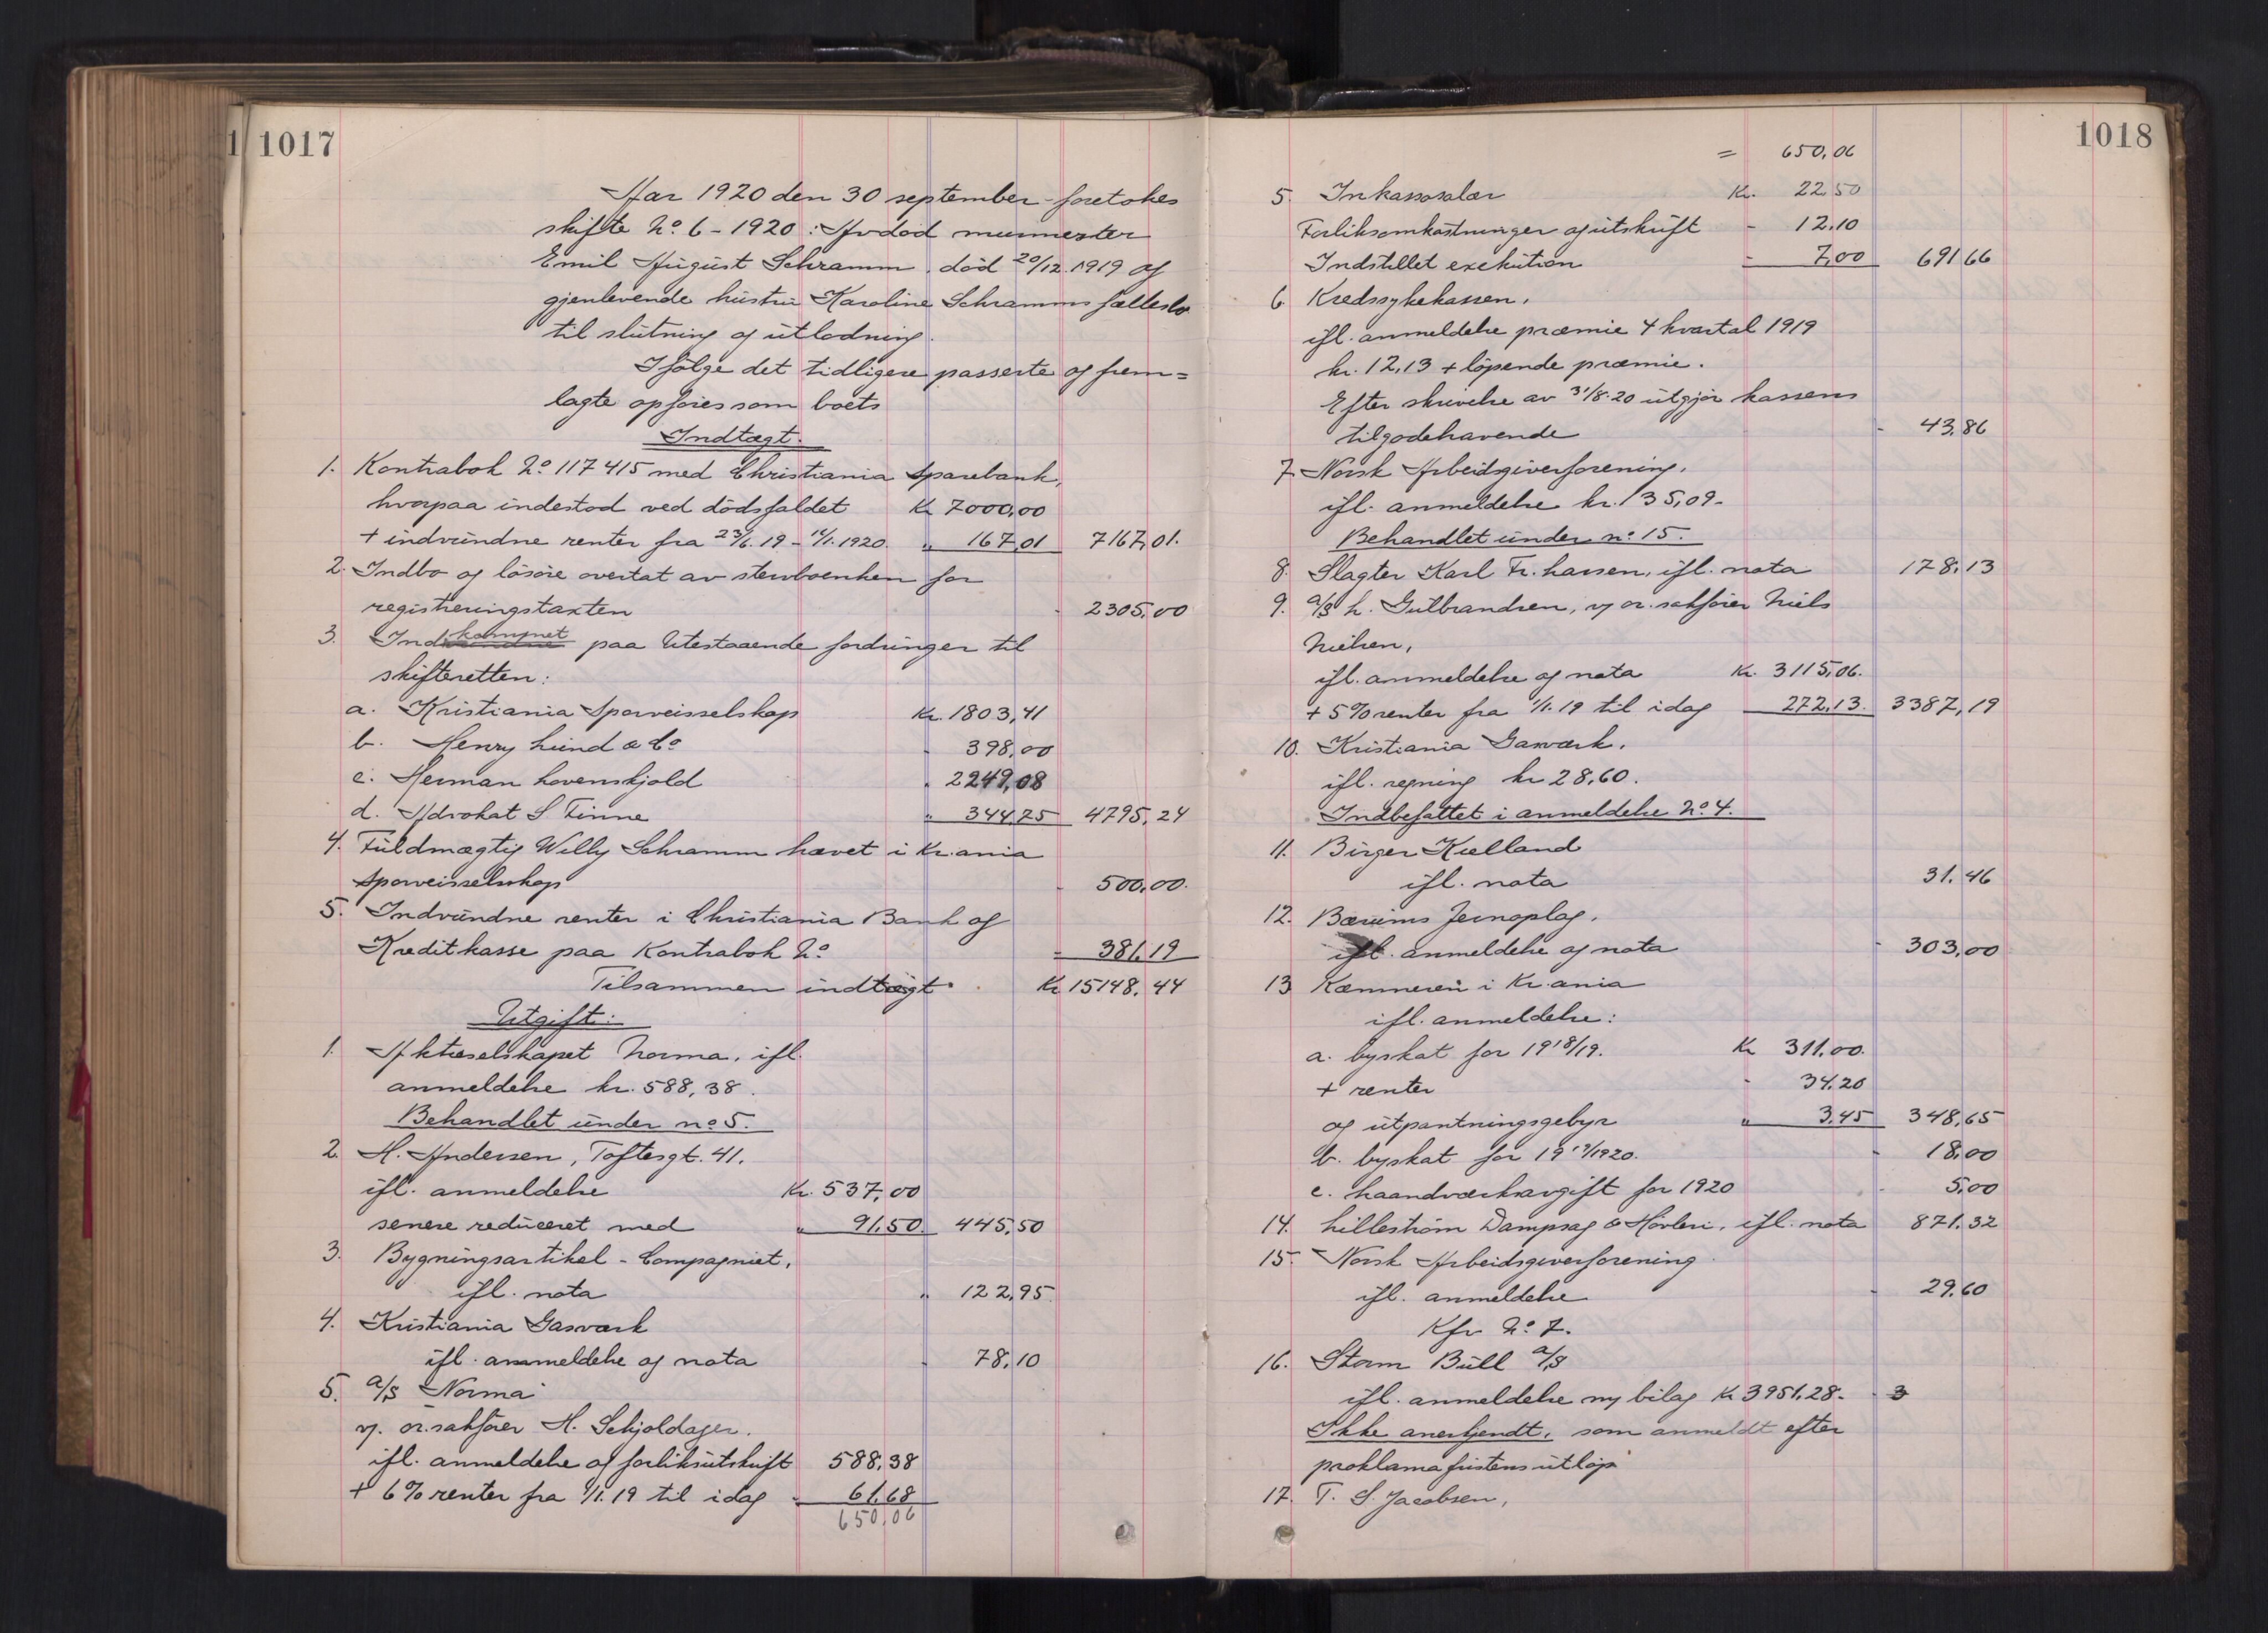 1 1017
Aar 1920 den 30 september foretokes
skifte No. 6 - 1920: Avdød murmester
Emil August Schramm, død 20/12.1919 og
gjenlevende hustru Karoline Schramms fællesbo
til slutning og utlodning.
Ifølge det tidligere passerte og frem=
lagte opføres som boets
Indtægt.
1. Kontrabok No. 117415 med Christiania Sparebank,
hvorpaa indestod ved dødsfaldet Kr 7000,00
+ indvundne renter fra 23/6.19 - 14/1.1920. " 167,01 7167,01.
2. Indbo og løsøre overtat av stervboenken for
registreringstaxten - 2305,00
3. Indkommet paa Utestaaende fordringer til
skifteretten:
a. Kristiania Sporveisselskap Kr. 1803,41
b. Henry Lund & Co - 398,00
c. Herman Løvenskjold " 2249,08
d. Advokat S Finne " 344,75 4795,24
4. Fuldmægtig Willy Schramm hævet i Kr.ania
Sporveisselskap - 500,00.
5. Indvundne renter i Christiania Bank og
Kreditkasse paa Kontrabok No - 381,19
Tilsammen indtægt. Kr 15148,44
Utgift:
1. Aktieselskapet Norma, ifl.
anmeldelse kr. 588,38.
Behandlet under no 5.
2. H. Andersen, Toftesgt. 41.
ifl. anmeldelse Kr. 537,00
senere reduceret med " 91,50. 445,50
3. Bygningsartikel - Compagniet,
ifl. nota " 122,95.
4. Kristiania Gasværk
ifl. anmeldelse og nota - 78,10
5. a/s "Norma"
v. or.sakfører H. Schjoldager.
ifl. anmeldelse og forliksutskrift 588,38
+ 6% renter fra 1/1.19 til idag - 61,68
650,06
1018
= 650,06
5. Inkassosalær Kr. 22,50
Forliksomkostninger og utskrift - 12,10
Indstillet exekution - 7,00 691,66
6. Kredssykekassen,
ifl. anmeldelse præmie 4 kvartal 1919
kr. 12,13 + løpende præmie.
Efter skrivelse av 31/8.20 utgjør kassens
tilgodehavende - 43,86
7. Norsk Arbeidsgiverforening,
ifl. anmeldelse kr. 135,09-
Behandlet under no 15.
8. Slagter Karl Fr. Larsen, ifl. nota 178,13
9. a/s L. Gulbrandsen, v or. sakfører Niels
Nielsen,
ifl. anmeldelse og nota Kr. 3115,06.
+ 5% renter fra 1/1.19 til idag 272,13. 3387,19
10. Kristiania Gasværk,
ifl. regning kr 28,60.
Indbefattet i anmeldelse No. 4.
11. Birger Kielland
ifl. nota 31.46
12. Bærums Jernoplag,
ifl. anmeldelse og nota - 303,00
13 Kæmneren i Kr.ania
ifl. anmeldelse:
a. byskat for 1918/19. Kr 311,00.
+ renter - 34.20
og utpantningsgebyr " 3,45 348,65
b. byskat for 1919/1920. - 18,00
c. haandværksavgift for 1920 - 5,00
14. Lillestrøm Dampsag & Høvleri, ifl. nota 871,32
15. Norsk Arbeidsgiverforening
ifl. anmeldelse - 29,60
Kfr No. 7.
16. Storm Bull a/s
ifl. anmeldelse ny bilag Kr 3951,28. - 3
Ikke anerkjendt, som anmeldt efter
proklamafristens utløp
17. T. S. Jacobsen,